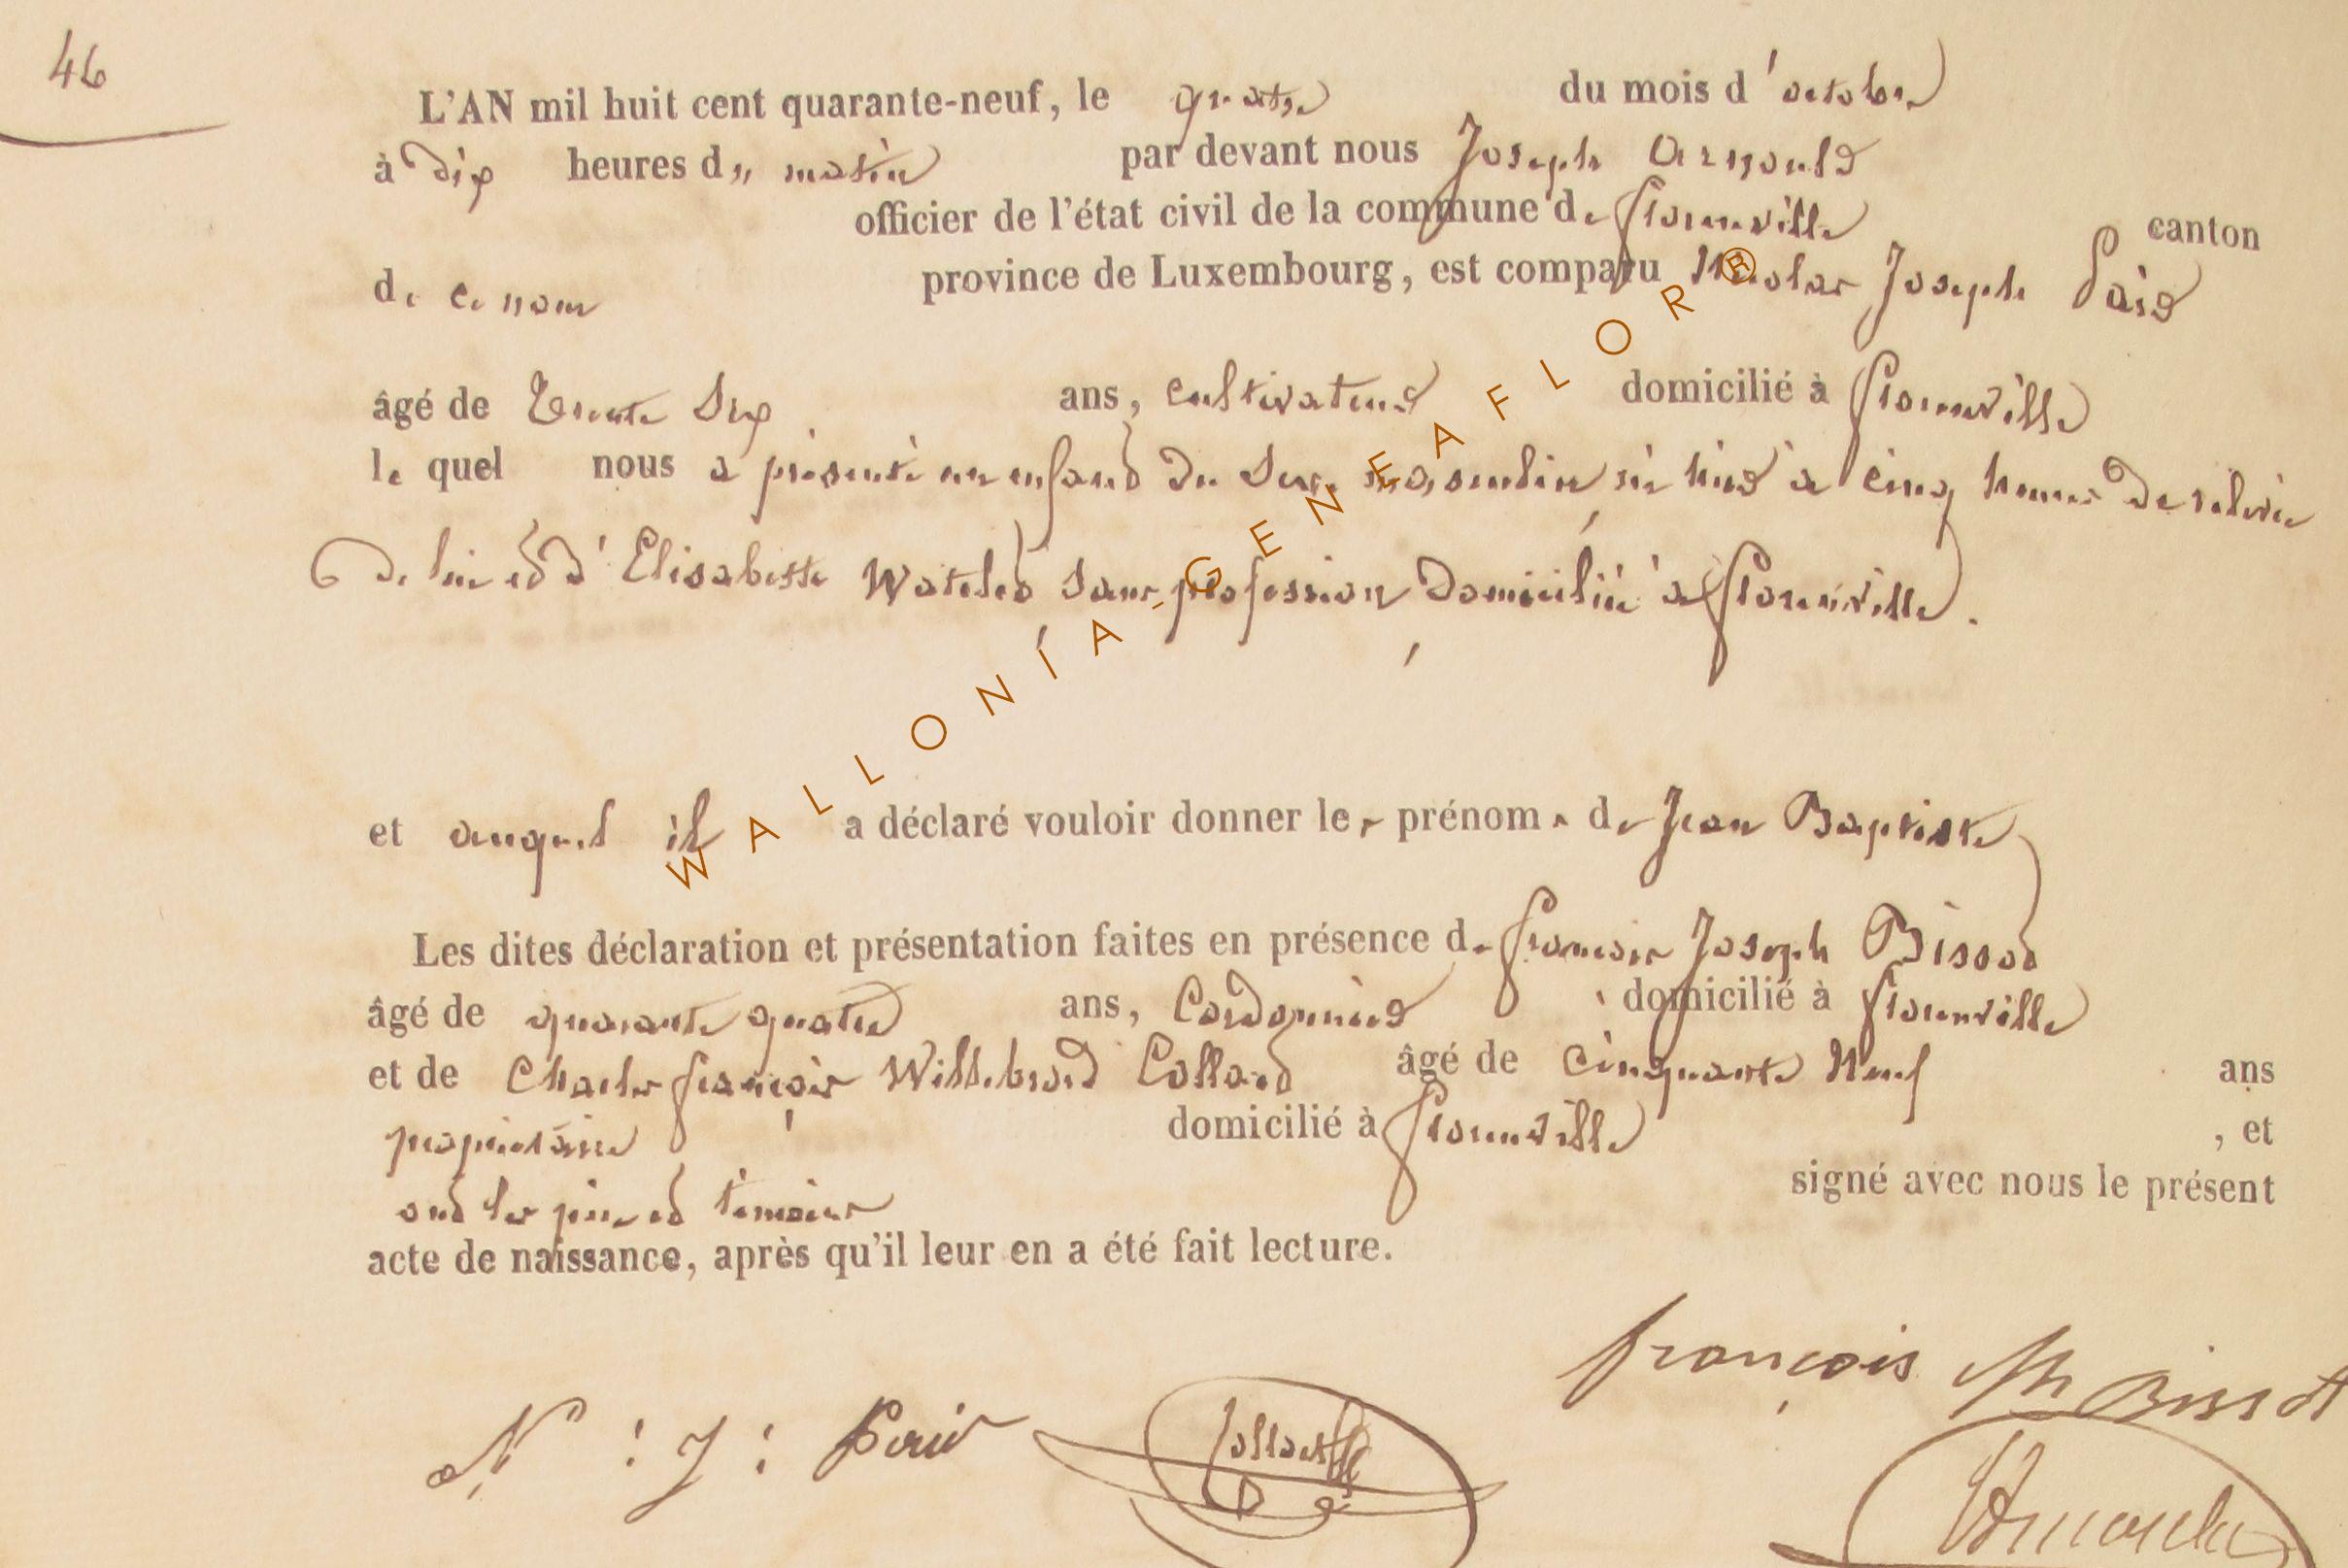 46
L'AN mil huit cent quarante-neuf, le quatre du mois d'octobre
à dix heures du matin par devant nous Joseph Arnould
officier de l'état civil de la commune de florenville canton
de ce nom province de Luxembourg, est comparu Nicolas Joseph
âgé de Trente Six ans, cultivateur domicilié à florenville
le quel nous a présenté un enfant du Sexe masculin, né hier à cinq heures de relevée
de lui et d'Elisabeth Watelet, Sans profession, Domicilié à florenville.
et auquel il a déclaré vouloir donner les prénoms de Jean Baptiste
Les dites déclaration et présentation faites en présence de françois Joseph Bissot
âgé de quarante quatre ans, Cordonnier domicilié à florenville
et de Charles françois Willebrord Collard âgé de cinquante Neuf ans
propriétaire domicilié à florenville, et
ont les père et témoins signé avec nous le présent
acte de naissance, après qu'il leur en a été fait lecture.
françois Bissot
N : J :
WALLONÍA-GENEAFLOR®